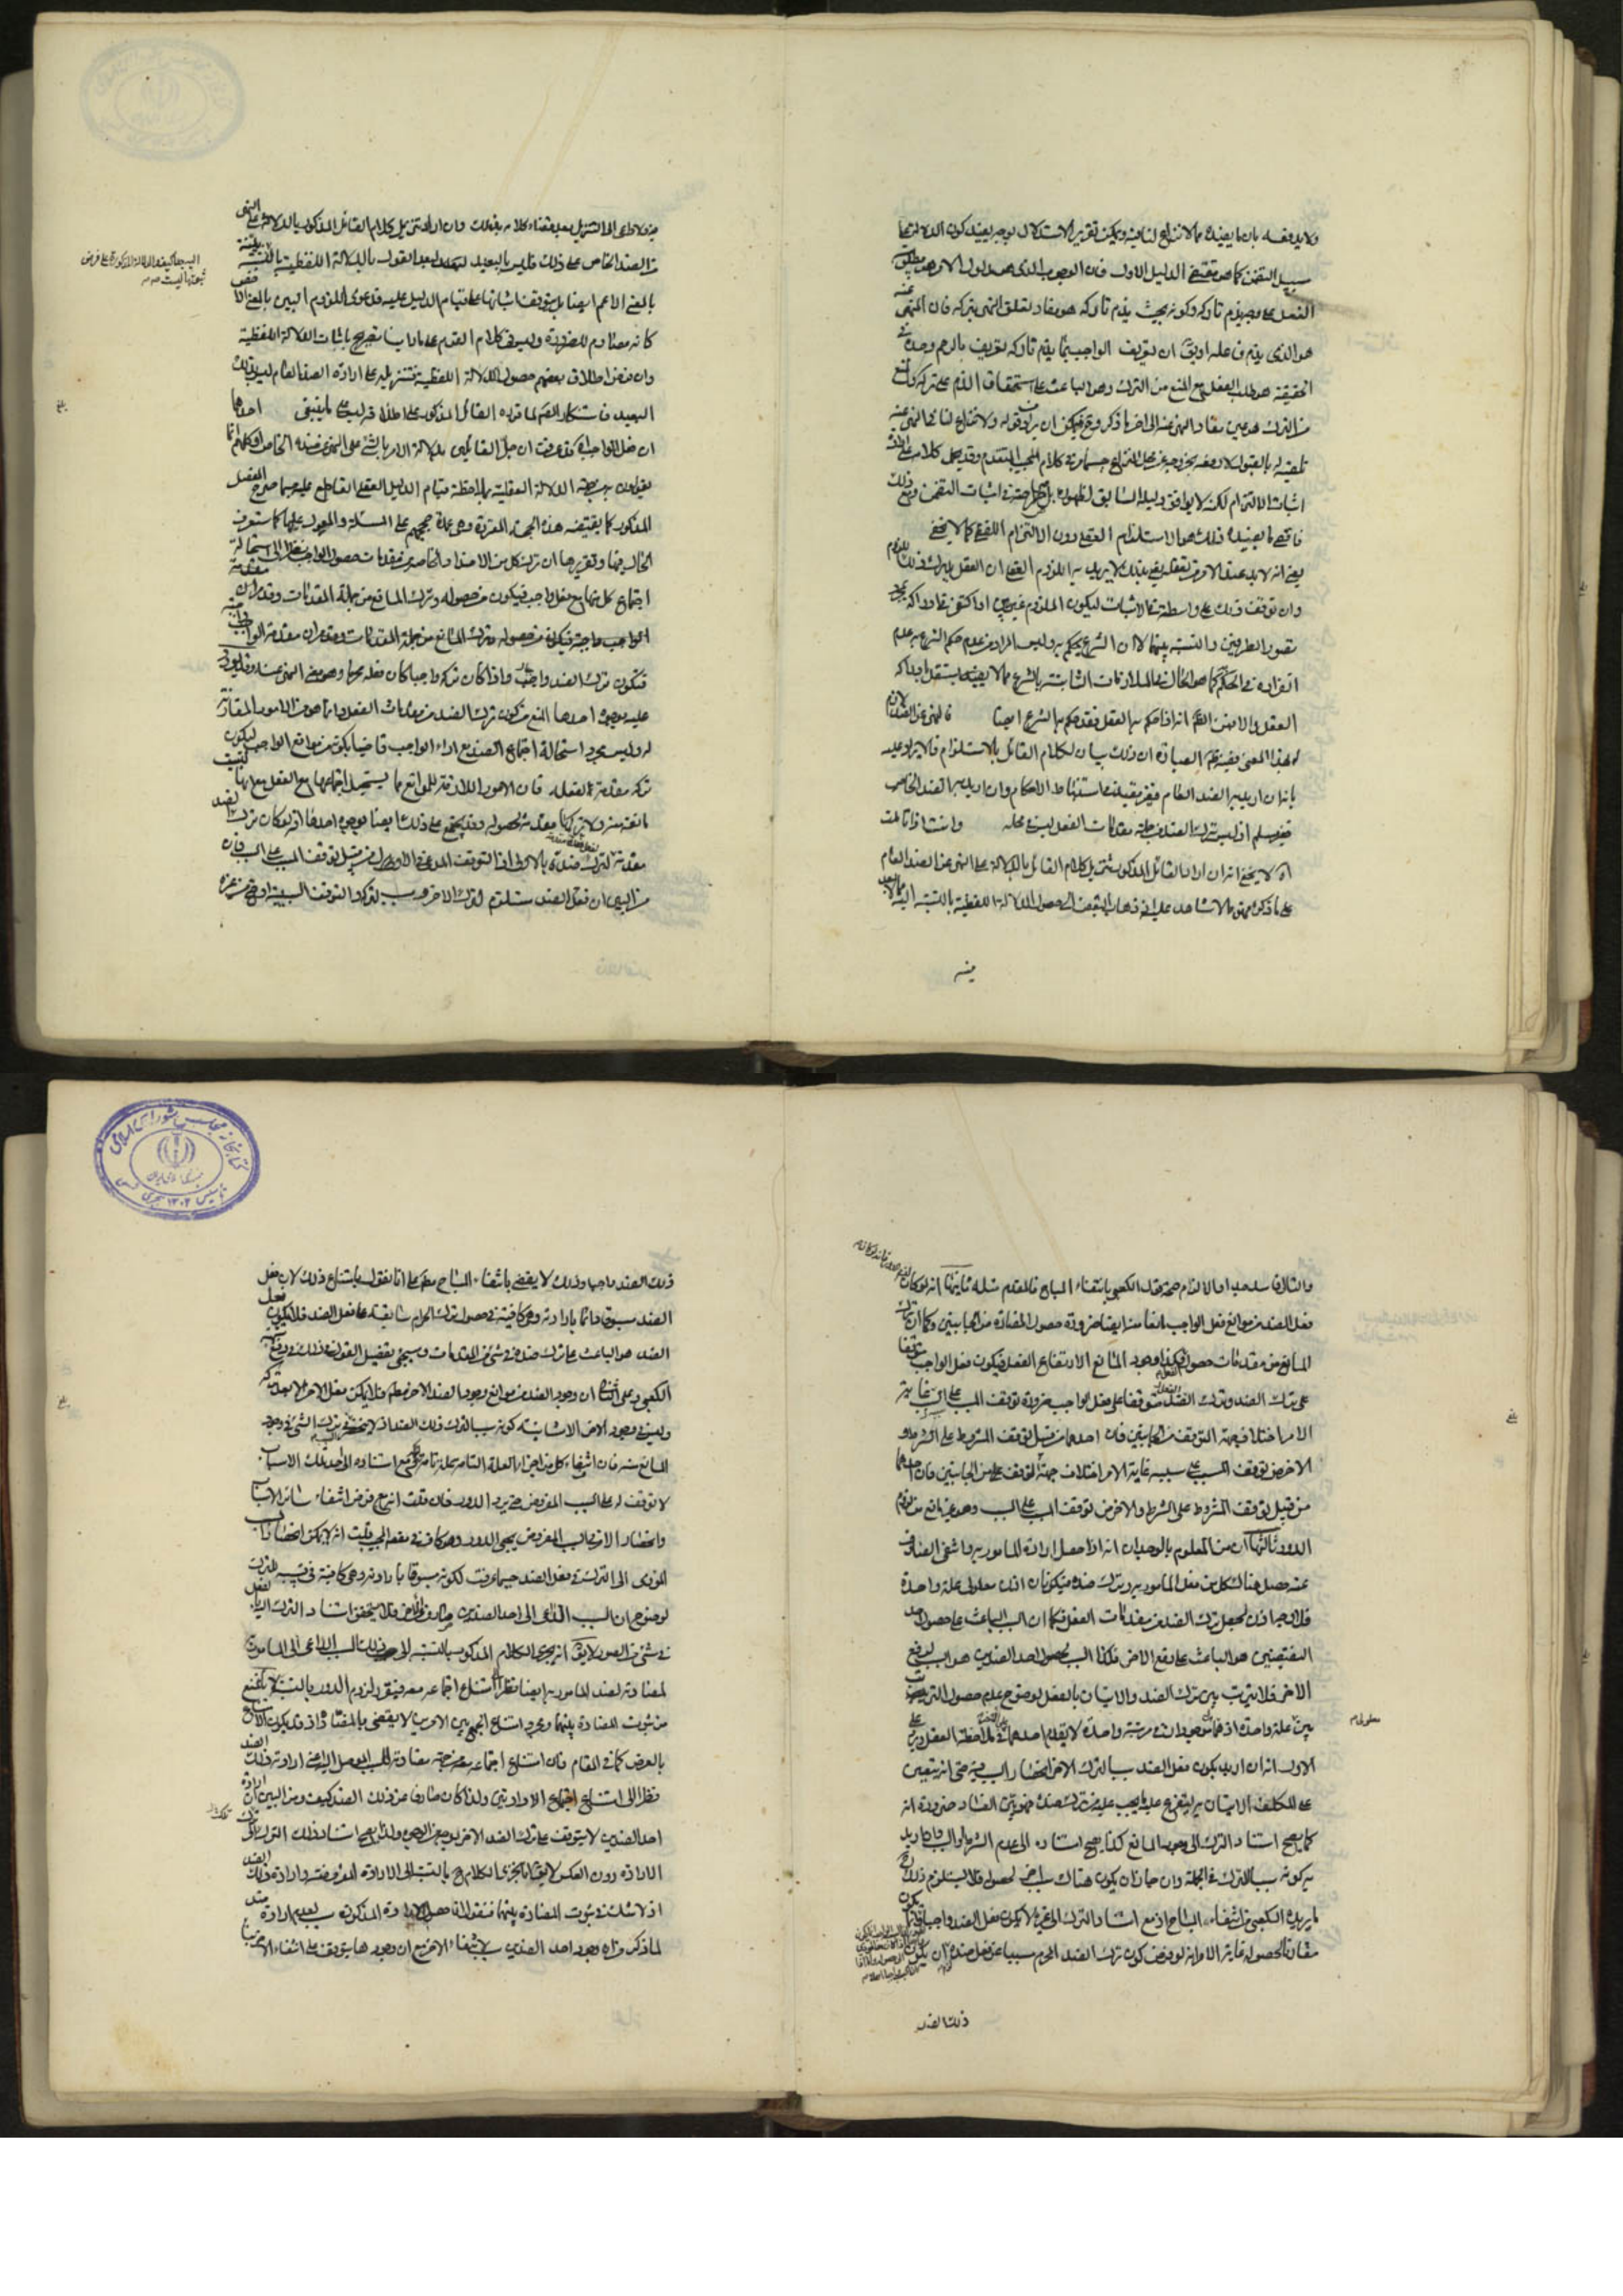 ولا يدفعه بان ما يفيده مما لا نزاع لنا فيه ويمكن تقرير الاستدلال بوجه يفيد كون الدلالة على
سبيل التضمن كما هو مقتضى الدليل الاول فان الوجوب الذي هو مدلول الامر هو
الفعل على وجه يذم تاركه وكونه بحيث يذم تاركه هو مفاد تعلق النهي بتركه فان المنهى عنه
هو الذي يذم فاعله او يق ان تعريف الواجب بما يذم تاركه تعريف بالرسم وحده في
الحقيقة هو طلب الفعل مع المنع من الترك وهو الباعث على استحقاق الذم على تركه والمنع
من الترك هو عين مفاد النهى عنه الى اخر ما ذكر وح فيمكن ان يراد بقوله ولا نزاع لنا في النهي عنه
تلقيه له بالقبول لا دفعه بخروجه عن محل النزاع حسبما مر في كلام المجيب المتقدم وقد يحمل كلامه على ارادة
اثبات الالتزام لكنه لا يوافق دليله السابق لظهوره بل صراحته في اثبات التضمن ومع ذلك
فاقصى ما يفيده ذلك هو الاستلزام العقلي دون الالتزام اللفظي كما لا يخفى
يعني انه لا بد عند الامر من تعقله يعني بذلك لا يريد به اللزوم العقلي ان العقل يدرك ذلك اللزوم
وان توقف ذلك على واسطة في الاثبات ليكون الملزوم غير بين او اكتفى في ادراكه بمجرد
تصور الطرفين والنسبة بينهما لا ان الشرع يحكم به وليس المراد من عدم حكم الشرع به عدم
انفراده في الحكم كما هو الحال في الملازمات الثابتة بالشرع مما لا يستقل بادراكه
العقل لوضوح انه اذا حكم به العقل فقد حكم به الشرع ايضا فالنهي عن الضد لازم
له بهذا المعنى قضية ظاهر العبارة ان ذلك بيان لكلام القائل بالاستلزام فالايراد عليه
بانه ان اريد به الضد العام فغير مفيد في استنباط الاحكام وان اريد به الضد الخاص
فغير مسلم اذ ليس ترك الضد من جملة مقدمات الفعل ليس في محله وانت اذا تاملت
آه لا يخفى انه ان اراد القائل المذكور تنزيل كلام القائل بالدلالة على النهي عن الضد العام
على ما ذكره فهو مما لا شاهد عليه اذ ذهاب البعض الى حصول الدلالة اللفظية بالنسبة اليه مما لا بعد
فيه
فيه ولا داعي الى التنزيل بعد اقتضاء كلامه بذلك وان اراد تنزيل كلام القائل المذكور بالدلالة على النهي
عن الضد الخاص على ذلك فليس بالبعيد لبعد القول بالدلالة اللفظية بالنسبة اليه
بالمعنى الاعم ايضا بل يتوقف اثباتها على قيام الدليل عليه فدعوى اللزوم البين بالمعنى الاخص
كانه مصادم للضرورة وليس في كلام القوم على ما راينا تصريح باثبات الدلالة اللفظية
وان فرض اطلاق بعضهم حصول الدلالة اللفظية فتنزيله على ارادة الضد العام ليس بذلك
البعيد فاستنكار المصنف لما افاده القائل المذكور على اطلاقه ليس على ما ينبغي احدها
ان فعل الواجب اه قد عرفت ان جل القائلين بدلالة الامر بالشئ على النهي عن ضده الخاص او كلهم انما
يقولون به من جهة الدلالة العقلية بملاحظة قيام الدليل العقلي القاطع عليه حسبما صرح به المفصل
المذكور كما يقتضيه هذه الحجة المقررة وهي عمدة حججهم على المسئلة والمعول عليها كما ستعرف
الحال فيها وتقريرها ان ترك كل من الاضداد الخاصة من مقدمات حصول الواجب نظرا الى استحالة
اجتماع كل منها مع فعل الواجب فيكون مانعا من حصوله وترك المانع من جملة المقدمات وقد مر ان مقدمة
الواجب واجبة فيكون ترك الضد واجبا
فيكون ترك الضد واجبا واذا كان تركه واجبا كان فعله محرما وهو معنى النهي عنه وقد يورد
عليه بوجوه احدها المنع من كون ترك الضد من مقدمات الفعل وانما هو من الامور المقارنة
له وليس مجرد استحالة اجتماع الضد مع اداء الواجب قاضيا بكونه من موانع الواجب ليكون
تركه مقدمة لفعله فان الامور اللازمة للموانع مما يستحيل اجتماعها مع الفعل مع انها ليست
مانعة منه ولا تركها مقدمة لحصوله وقد يحتج على ذلك ايضا بوجوه احدها انه لو كان ترك الضد
مقدمة لفعل ضده لكان فعل الضد مقدمة لترك ضده بالاولى اذ التوقف المدعى في الاول من قبيل توقف المسبب على السبب فان
من البين ان فعل الضد مستلزم لترك الاخر
والتالي فاسد
فعل الضد من موانع فعل الواجب
المانع من مقدمات حصول الفعل فكذا وجود المانع
على ترك الضد وترك الضد متوقفا على فعل الواجب ضرورة توقف المسبب على السبب غاية
الامر اختلاف جهة التوقف من الجانبين فان احدهما من قبيل توقف المشروط على الشرط و
الاخر من توقف المسبب على سببه غاية الامر اختلاف جهة التوقف من الجانبين فان احدهما
من قبيل توقف المشروط على الشرط والاخر من توقف المسبب على السبب وهو غير مانع من لزوم
الدور ثالثها ان من المعلوم بالوجدان انه اذا حصل ارادة المامور به وانتفى الصارف
عنه حصل هناك كل من فعل المامور به وترك ضده فيكونان اذن معلولي علة واحدة
فلا وجه اذن لجعل ترك الضد من مقدمات الفعل فكما ان السبب الباعث على حصول احد
النقيضين هو الباعث على رفع الاخر فكذا السبب لحصول احد الضدين هو السبب لرفع
الاخر فلا ترتب بين ترك الضد والاتيان بالفعل لوضوح عدم حصول الترتيب
بين معلولي علة واحدة اذ هما موجودان في مرتبة واحدة لا يتقدم احدهما في ملاحظة العقل ويرد على
الاول انه ان اريد بكون فعل الضد سببا لترك الاخر انحصار السبب فيه حتى انه يتعين
على المكلف الاتيان به ليتفرع عليه ما يجب عليه من ترك ضده فهو بين الفساد ضرورة انه
كما يصح استناد الترك الى وجود المانع كذا يصح استناده الى عدم الشرط او السبب وان اريد
به كونه سببا للترك في الجملة وان جاز ان يكون هناك سبب اخر لحصوله فلا يستلزم ذلك ح
ما يريده الكعبي من انتفاء المباح اذ مع استناد الترك الى غيره لا يكون فعل الضد واجبا
مقارنا لحصوله غاية الامر انه لو فرض كون ترك الضد المحرم مسببا عن فعل ضده ان يكون
معلولي م
ذلك الضد
ذلك الضد واجبا وذلك لا يقضي بانتفاء المباح مطلقا على انا نقول بامتناع ذلك لان فعل
الضد مسبوق دائما بارادته وهي كافية في حصول ترك الحرام سابقة على فعل الضد فلا يكون فعل
الضد هو الباعث على ترك ضده في شئ من المقامات وسيجئ تفصيل القول في ذلك في دفع شبهة
الكعبي وعلى الثاني ان وجود الضد من موانع وجود الضد الاخر مطلقا فلا يمكن فعل الاخر الا بعد تركه
وليس في وجود الاخر الا شانية كونه سببا لترك ذلك الضد اذ لا ينحصر السبب في ترك الشئ في وجود
المانع منه فان انتفاء كل من اجزاء العلة التامة علة تامة لتركه ومع استناده الى احد تلك الاسباب
لا توقف له على السبب المفروض حتى يرد الدور فان قلت انه مع فرض انتفاء سائر الاسباب
وانحصار الامر في السبب المفروض يجئ الدور وهو كاف في مقصد المجيب قلت انه لا يمكن انحصار السبب
المؤدي الى الترك في فعل الضد حسبما عرفت لكونه مسبوقا بارادته وهي كافية في سببية الترك
لوضوح ان السبب الداعي الى احد الضدين صارف عن الاخر فلا يتحقق استناد الترك الى فعل الضد
في شئ من الصور لا يق انه يجري الكلام المذكور بالنسبة الى ذلك السبب الداعي الى المامور به
لمضادته لضد المامور به ايضا نظرا الى امتناع اجتماعه معه فيتقرر لزوم الدور بالنسبة اليه لانا نمنع
من ثبوت المضادة بينهما ومجرد امتناع الجمع بين الامرين لا يقضي بالمضادة اذ قد يكون الامتناع
بالعرض كما في المقام فان امتناع اجتماعه معه من جهة مضادته للسبب الموصل اليه اعني ارادة ذلك الضد
نظرا الى امتناع اجتماع الارادتين ولذا كان صارفا عن ذلك الضد كيف ومن البين ان ارادة
احد الضدين لا يتوقف على ترك الضد الاخر بوجه من الوجوه ولذا يصح استناد ذلك الترك الى
الارادة دون العكس لا يق انا نجري الكلام ح بالنسبة الى الارادة المفروضة وارادة ذلك الضد
اذ لا شك في ثبوت المضادة بينهما فنقول ان حصول الارادة المذكورة سبب لعدم ارادة ضده
لما ذكر من ان وجود احد الضدين سبب لانتفاء الاخر مع ان وجودها يتوقف على انتفاء الاخر